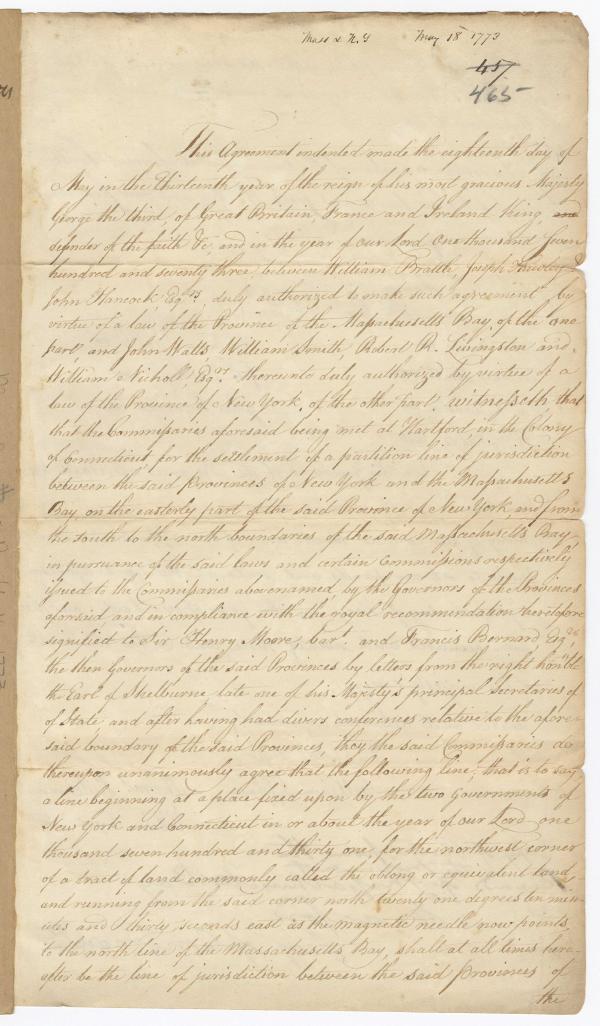 Mass & N.Y May 18 1773
457
465
This Agreement indented made the eighteenth day of
May in the Thirteenth year of the reign of his most gracious Majesty
George the third, of Great Britain, France and Ireland King, and
defender of the faith &c, and in the year of our Lord One thousand Seven
hundred and seventy three, between William Brattle, Joseph Hawley &
John Hancock, Esqrs duly authorized to make such agreement by
virtue of a law of the Province of the Massachusetts Bay, of the one
part, and John Watts, William Smith, Robert R. Livingston and
William Nicholl Esqrs thereunto duly authorized by virtue of a
law of the Province of New York, of the other part. Witnesseth that
that the Commissaries aforesaid being met at Hartford, in the Colony
of Connecticut, for the settlement of a partition line of jurisdiction
between the said Provinces of New York and the Massachusetts
Bay, on the easterly part of the said Province of New York, and from
the south to the north boundaries of the said Massachusetts Bay,
in pursuance of the said laws and certain Commissions respectively
issued to the Commissaries abovenamed, by the Governors of the Provinces
aforesaid, and in compliance with the royal recommendation heretofore
signified to Sir Henry Moore, bart. and Francis Bernard, Esqrs
the then Governors of the said Provinces by letters from the right honble
the Earl of Shelburne late one of his Majesty's principal Secretaries of
of State and after having had divers conferences relative to the afore-
said boundary of the said Provinces, they the said Commissaries do
thereupon unanimously agree that the following line, that is to say
a line beginning at a place fixed upon by the two Governments of
New York and Connecticut in or about the year of our Lord one
thousand seven hundred and thirty one, for the northwest corner
of a tract of land commonly called the oblong or equivalent land,
and running from the said corner north twenty one degrees ten min-
utes and thirty seconds east as the magnetic needle now points,
to the north line of the Massachusetts Bay, shall at all times here-
after be the line of jurisdiction between the said Provinces of
the